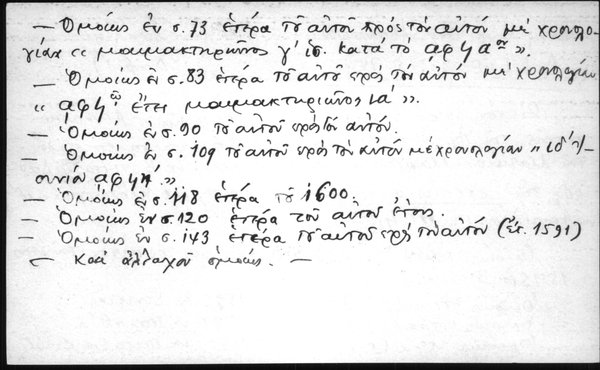 — Ὁμοίως ἐν σ. 73 ἑτέρα τοῦ αὐτοῦ πρὸς τὸν αὐτόν μὲ χρονολο-
γίαν « μαιμακτηριῶνος γ' ἱσ. κατὰ τὸ αφϟαον ».
— Ὁμοίως ἐν σ. 83 ἑτέρα τοῦ αὐτοῦ πρὸς τὸν αὐτόν μὲ χρονολογίαν
« αφϟῷ ἔτει μαιμακτηριῶνος ια' ».
— Ὁμοίως ἐν σ. 90 τοῦ αὐτοῦ πρὸς τὸν αὐτόν.
— Ὁμοίως ἐν σ. 109 τοῦ αὐτοῦ πρὸς τὸν αὐτόν μὲ χρονολογίαν « ιδ'
αφϟ' »
— Ὁμοίως ἐν σ. 118 ἑτέρα τοῦ 1600.
— Ὁμοίως ἐν σ. 120 ἑτέρα τοῦ αὐτοῦ ἔτους.
— Ὁμοίως ἐν σ. 143 ἑτέρα τοῦ αὐτοῦ πρὸς τὸν αὐτόν (ἔτ. 1591)
— καὶ ἀλλαχοῦ ὁμοίως. —